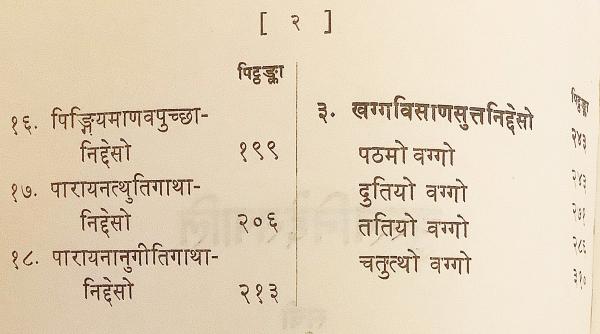 [ २ ]
पिट्ठङ्का
१६. पिङ्गियमाणवपुच्छा-
निद्देसो १९९
१७. पारायनत्थुतिगाथा-
निद्देसो २०६
१८. पारायनानुगीतिगाथा-
निद्देसो २१३
पिट्ठङ्का
३. खग्गविसाणसुत्तनिद्देसो २४३
पठमो वग्गो २४३
दुतियो वग्गो २७१
ततियो वग्गो २८६
चतुत्थो वग्गो ३१०